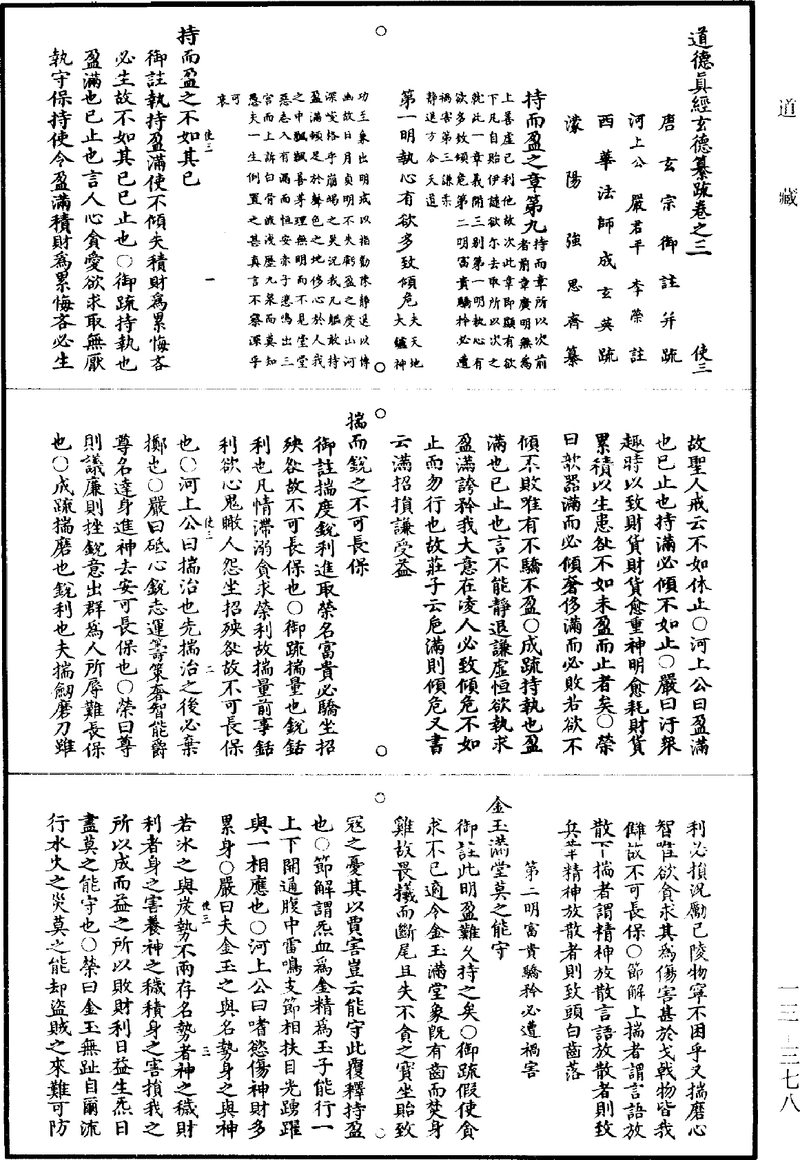 道藏
道德眞經玄德纂疏卷之三　使三
唐玄宗御註并疏
河上公嚴君平李榮註
西華法師成玄英疏
濛陽強思齊纂
持而盈之章第九持而章所以次前者前章廣明無爲
上善虛己利他故次此章即顯有欲
下凡自貽伊譴欲尒去取所以次之
就此一章義開三別第一明執心有
欲多致傾危第二明富貴驕矜必遭
禍害第三謙柔
靜退方合天道
第一明執心有欲多致傾危夫天地大鑪神
功至象出明或以指動陳靜退以傳
幽故日月貞明不失虧盈之度山河
深峻恪乎崩竭之災況我凡軀敢持
盈滿頓足於聲色之地侈心於人我
之中飄飄喜茅理無明而不見堂堂
惡卷入有漏而恒安赤子悲鳴出三
宮而上訴白骨流淺歷九泉而莫知
愚夫一生倒置之甚真言不察深乎
可哀
持而盈之不如其已
御註執持盈滿使不傾失積財爲累悔吝
必生故不如其已已止也○御疏持執也
盈滿也已止也言人心貪愛欲求取無厭
執守保持使令盈滿積財爲累悔吝必生
使三　一
故聖人戒云不如休止○河上公曰盈滿
也已止也持滿必傾不如止○嚴曰汙架
趣時以致財貨財貨愈重神明愈耗財貨
累積以生患欲不如未盈而止者矣○榮
曰欹器滿而必傾奢侈滿而必敗若欲不
傾不敗唯有不驕不盈○成疏持執也盈
滿也已止也言不能靜退謙虛恒欲執求
盈滿誇矜我大意在凌人必致傾危不如
止而勿行也故莊子云危滿則傾危又書
云滿招損謙受益
揣而銳之不可長保
御註揣度銳利進取榮名富貴必驕坐招
殃咎故不可長保也○御疏揣量也銳銛
利也凡情滯溺貪求榮利故揣量前事銛
利欲心鬼瞰人怨坐招殃咎故不可長保
也○河上公曰揣治也先揣治之後必棄
擲也○嚴曰砥心銳志運籌策奢智能爵
尊名達身進神去安可長保也○榮曰尊
則議廉則挫銳意出群爲人所辱難長保
也○成疏揣磨也銳利也夫揣劒磨刀雖
使三　二
利必損況勵己陵物寧不困乎又揣磨心
智唯欲貪求其爲傷害甚於戈戟物皆我
讎故不可長保○節解上揣者謂言語放
散下揣者謂精神放散言語放散者則致
兵革精神放散者則致頭白齒落
第二明富貴驕矜必遭禍害
金玉滿堂莫之能守
御註此明盈難久持之矣○御疏假使貪
求不已適令金玉滿堂象既有齒而焚身
雞故畏犧而斷尾且失不貪之寶坐貽致
寇之憂其以賈害豈云能守此覆釋持盈
也○節解謂炁血爲金精爲玉子能行一
上下開通腹中雷鳴支節相扶目光踴躍
與一相應也○河上公曰嗜慾傷神財多
累身○嚴曰夫金玉之與名勢身之與神
若冰之與炭勢不兩存名勢者神之穢財
利者身之害養神之穢積身之害損我之
所以成而益之所以敗財利日益生炁日
盡莫之能守也○榮曰金玉無趾自爾流
行水火之災莫之能却盜賊之來難可防
使三　三
一三—三七八